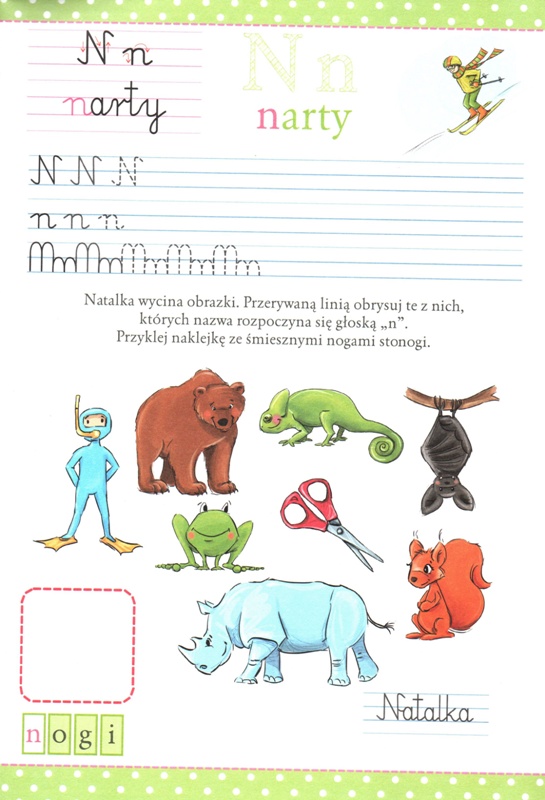 N n
N n
narty
narty
N N N
n n n
Natalka wycina obrazki. Przerywaną linią obrysuj te z nich,
których nazwa rozpoczyna się głoską „n”.
Przyklej naklejkę ze śmiesznymi nogami stonogi.
Natalka
nogi